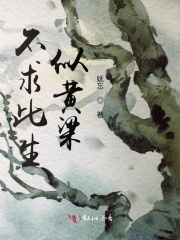 不求此生
似黄梁
妩忘
著
红袖添香